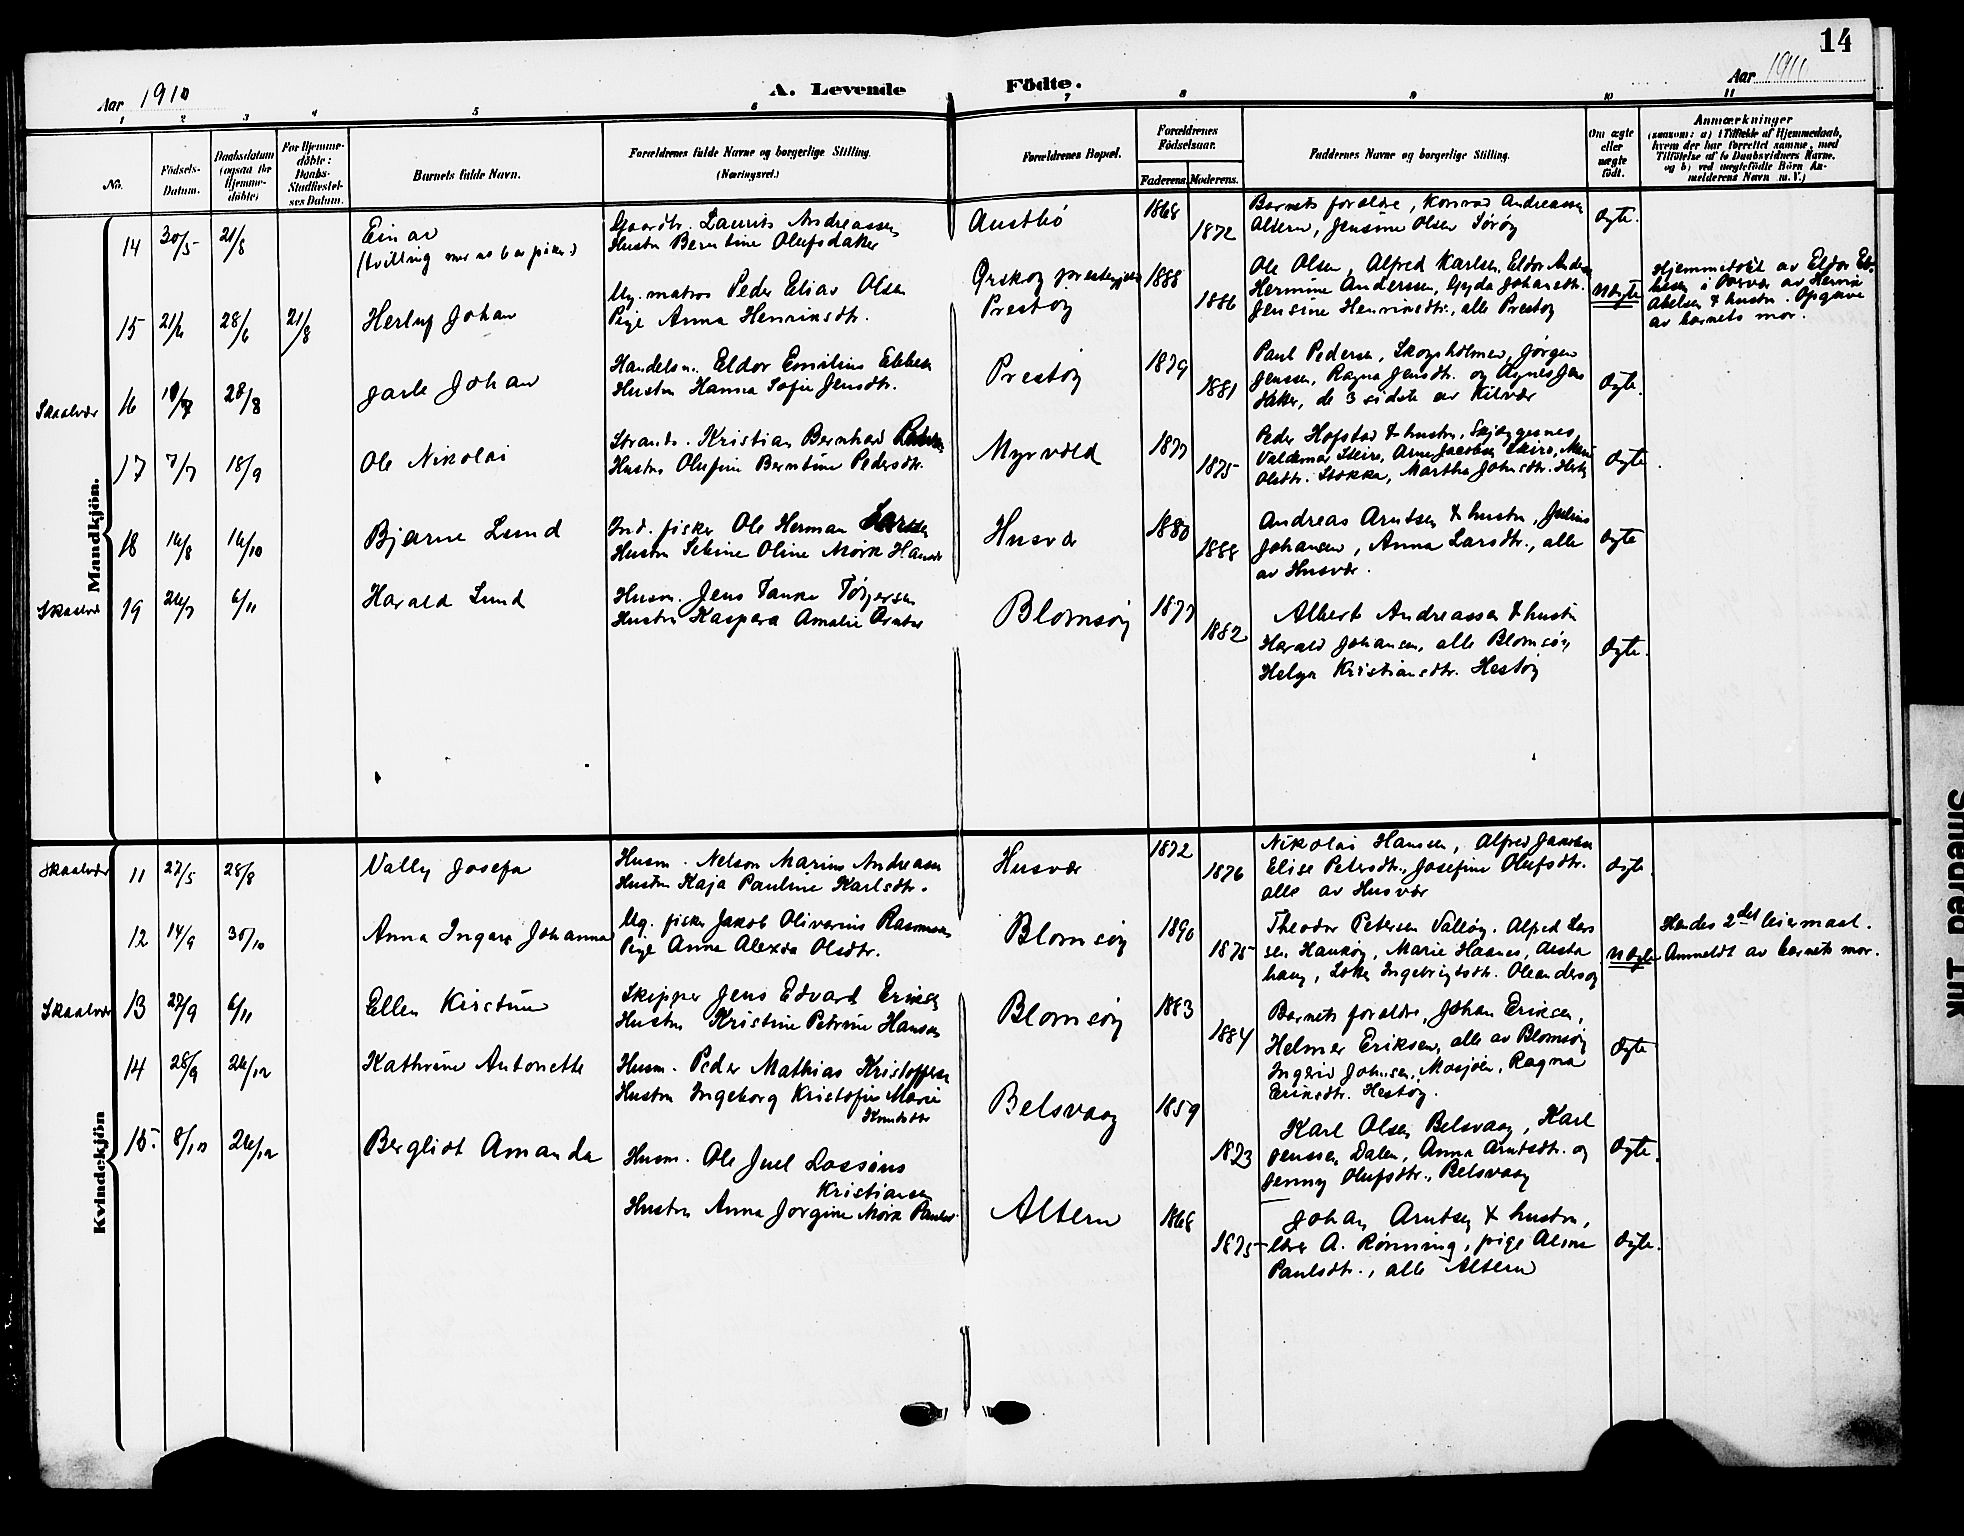 14
Aar 1910
A. Levende
Födte.
Aar 1910
1 2 3 4 5 6 7 8 9 10 11
No.
Födsels-
Datum.
Daabsdatum
(ogsaa for
Hjemme-
döbte)
For Hjemme-
döbte:
Daabs-
Stadfæstel-
ses Datum.
Barnets fulde Navn.
Forældrenes fulde Navne og borgerlige Stilling.
(Næringsvei.)
Forældrenes Bopæl.
Forældrenes
Födselsaar.
Faderens.
Moderens.
Faddernes Navne og borgerlige Stilling.
Om ægte
eller
uægte
födt.
Anmærkninger
(saasom: a) i Tilfælde af Hjemmedaab,
hvem der har forrettet samme, med
Tilföielse af to Daabsvidners Navne,
og b) ved uægtefödte Börn An-
melderens Navn m. V.)
Mandkjön.
14 30/5 21/8
Einar
(tvilling
Gaardbr. Laurits Andreassen
Hustru Berntine Olufsdaker
Austbö
1868
1872
Barnets forældre, Konrad Andreassen
Altern, Jensine Olsen Sörøy
Ægte.
15 21/6 28/6 21/8
Herluf Johan
Ug. matros Peder Elias Olsen
Pige Anna Henriksdtr.
Ørskog prestegjeld
Prestøy
1888
1886
Ole Olsen, Alfred Karlsen, Eldor Anders
Hermine Anderssen, Gyda Johansdtr.
Jensine Henriksdtr., alle Prestøy
Uægte
Hjemmedöbt av Eldor Eb-
besen i Forvær av Henrik
Abelsen & hustru. Opgave
av barnets mor.
Skaalvær
16 28/8
Jarle Johan
Handelsm. Eldor Emilius Ebbesen
Hustru Hanna Sofie Jensdtr.
Prestøy
1879
1881
Paul Pedersen, Skogsholmen, Jørgen
Jenssen, Ragna Jensdtr. og Agnes Jens
daker, de 3 sidste av Kilvær
Ægte.
17 7/7 18/9
Ole Nikolai
Strands. Kristian Bernhard
Hustru Olufine Berntine Pedersdtr.
Myrvold
1877
1875
Peder Hofstad & hustru, Skjeggesnes,
Valdemar Skeire, Arne Jacobsen Skeire,
Olsdtr. Stokka, Martha Johnsdtr.
Ægte
18 16/8 16/10
Bjarne Lund
Ind. fisker Ole Herman Larsen
Hustru Sebine Oline Mörk Hansdtr
Husvær
1880
1888
Andreas Arntsen & hustru, Julius
Johansen, Anna Larsdtr., alle
av Husvær.
Ægte
Skaalvær
19 26/7 6/11
Harald Lund
Husm. Jens Tanke Törgersen
Hustru Kaspara Amalie
Blomsøy
1877
1882
Albert Andreassen & hustru
Harald Johansen, alle Blomsöy
Helga Kristiansdtr. Hestøy
Ægte.
Kvindekjön
Skaalvær
11 27/5 28/8
Vally Josefa
Husm. Nelson Marius Andreassen
Hustru Kaja Pauline Karlsdtr.
Husvær
1872
1876
Nikolai Hansen, Alfred Jakobsen
Elise Petersdtr., Josefine Olufsdtr.
alle av Husvær
Ægte.
12 14/9 30/10
Anna Ingara Johanna
Ug. fisker Jakob Oliverius Rasmussen
Pige Anna Alexda Olsdtr.
Blomsöy
1890
1875
Theodor Petersen Valløy. Alfred Lars
sen, Hauköy, Marie Hasnes,
haug, Ingebrigtsdtr. Oleandersøy
Uægte
Hendes 2det leiermaal.
Anmeldt av barnets mor.
Skaalvær
13 27/9 6/11
Ellen Kirstine
Skipper Jens Edvard Eriksen
Hustru Kristine Petrine Hansen
Blomsöy
1883
1884
Barnets forældre, Johan Eriksen,
Helmer Eriksen, alle av Blomsöy
Ingerid Johnsen, Mosjöen, Ragna
Eriksdtr. Hestöy.
Ægte
14 28/9 26/12
Kathrine Antonette
Husm. Peder Mathias Kristoffersen
Hustru Ingeborg Kristofine Marie
Knutsdtr
Belsvaag
1859
1873
Karl Olsen Belsvaag, Karl
Jenssen Dalen, Anna Arntsdtr. og
Jenny Olufsdtr., Belsvaag
Ægte.
15. 8/10 26/12
Bergliot Amanda
Husm. Ole Juel Lossius
Kristiansen
Hustru Anna Jørgine Mörk Paulsd.
Altern
1868
1875
Johan Arntsen & hustru,
A. Rönning, pige Alma
Paulsdtr., alle Altern
Ægte.
Smedred Tnk